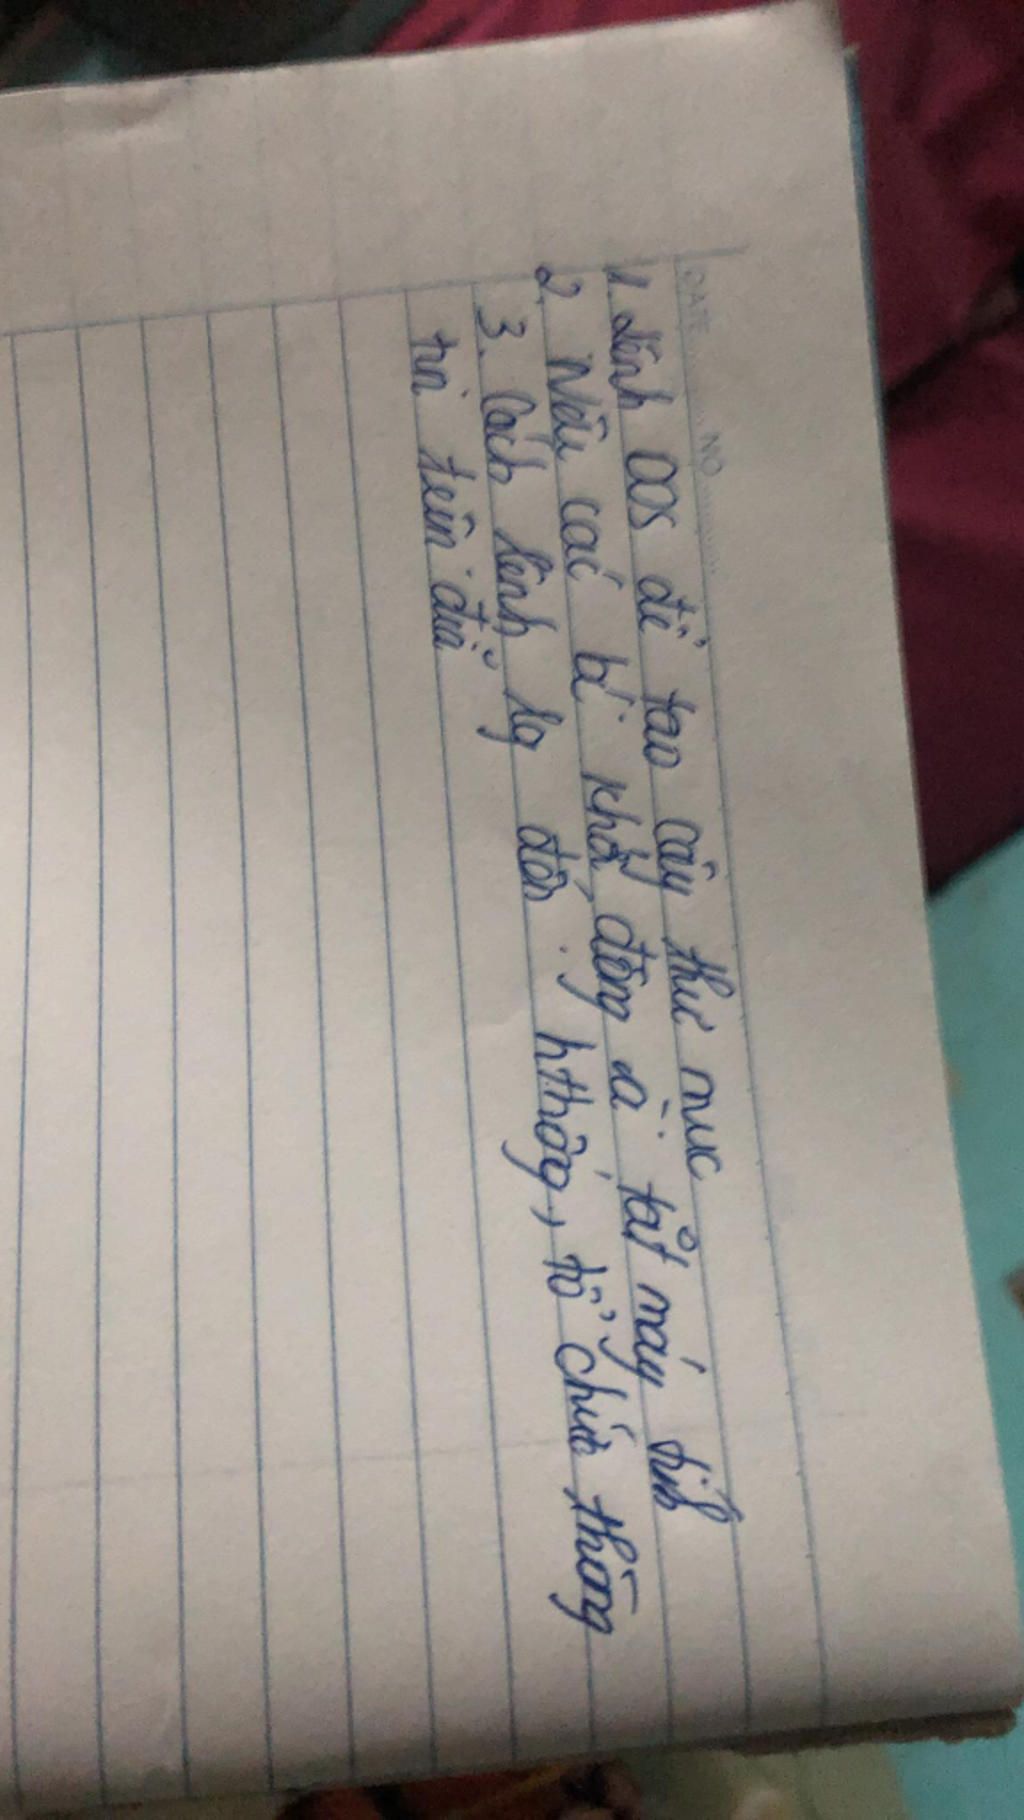 DATE NO
1. Lệnh DOS để tạo cây thư mục
2. Nêu các bc khởi động và tắt máy tính
3. Cách lệnh lq đến hthống, tổ chức thông
tin trên đĩa